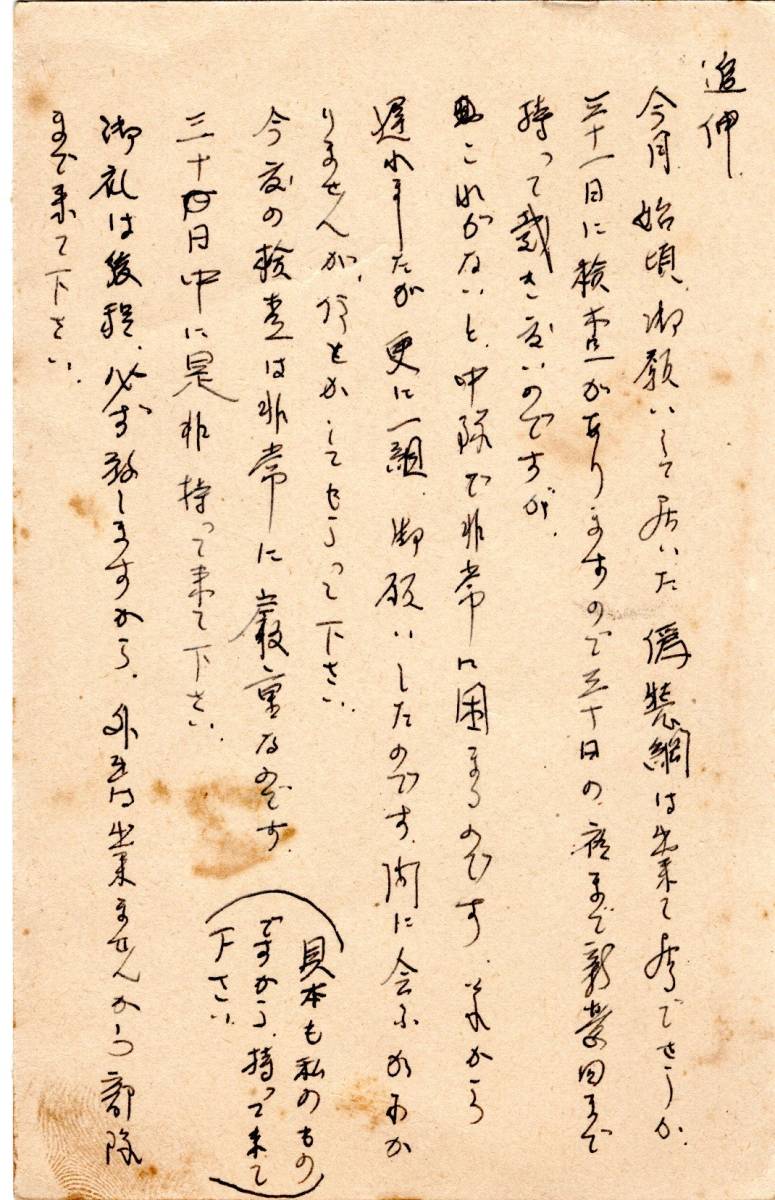 追伸
今月始頃、御願いして居いた偽装網は出来て居でせうか、
三十一日に検査がありますので三十日の夜まで新営内まで
持って戴き度いのですが、
これがないと、中隊で非常に困まるのです、それから
遅れましたが更に一組、御願いしたのです、間に合ふか分か
りませんが、何とかしてもらって下さい、
今度の検査は非常に厳重なのです、
三十日中に是非持って来て下さい、
御礼は後程、必ず致しますから、外出は出来ませんから部隊
まで来て下さい、
(見本も私のもの
ですから、持って来て
下さい、)